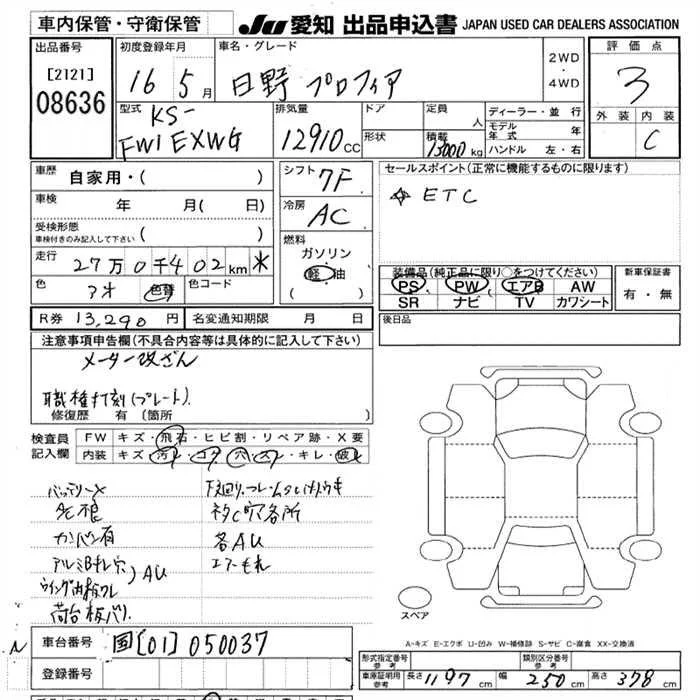 車内保管・守衛保管
JU 愛知 出品申込書 JAPAN USED CAR DEALERS ASSOCIATION
出品番号
[2121]
08636
初度登録年月
16年 5月
車名・グレード
日野 プロフィア
2WD
・
4WD
評価点
3
外装 内装
C
型式
KS-
FW1EXWG
排気量
12910 CC
ドア
形状
定員
人
積載
13000 kg
ディーラー・並行
モデル年式 年
ハンドル 左・右
車歴
自家用・( )
車検
年 月( 日)
受検形態
車検付きのみ記入して下さい ( )
走行
27万0千402km *
色
アオ
色替
色コード
シフト
7F
冷房
AC
燃料
ガソリン
軽油
( )
セールスポイント(正常に機能するものに限ります)
☆ ETC
装備品(純正品に限り○をつけてください)
PS PW エアB AW
SR ナビ TV カワシート
新車保証書
有・無
R券 13,290 円
名変通知期限 月 日
後日品
注意事項申告欄(不具合内容等は具体的に記入して下さい)
メーター改ざん
職権打刻(プレート)
修復歴 有(箇所 )
検査員
記入欄
FW キズ・飛石・ヒビ割・リペア跡・X要
内装 キズ・汚レ・コゲ・穴・スレ・キレ・破レ
バッテリーX
カンバン有
アルミBキレ穴)AU
荷台板バリ
各所
各AU
エアーもれ
スペア
A-キズ E-エクボ U-凹み W-補修跡 S-サビ C-腐食 XX-交換済
車台番号
国[01]050037
登録番号
形式指定番号
参考
類別区分番号
参考
車庫証明用
参考
長さ 1197 cm
幅 250 cm
高さ 378 cm